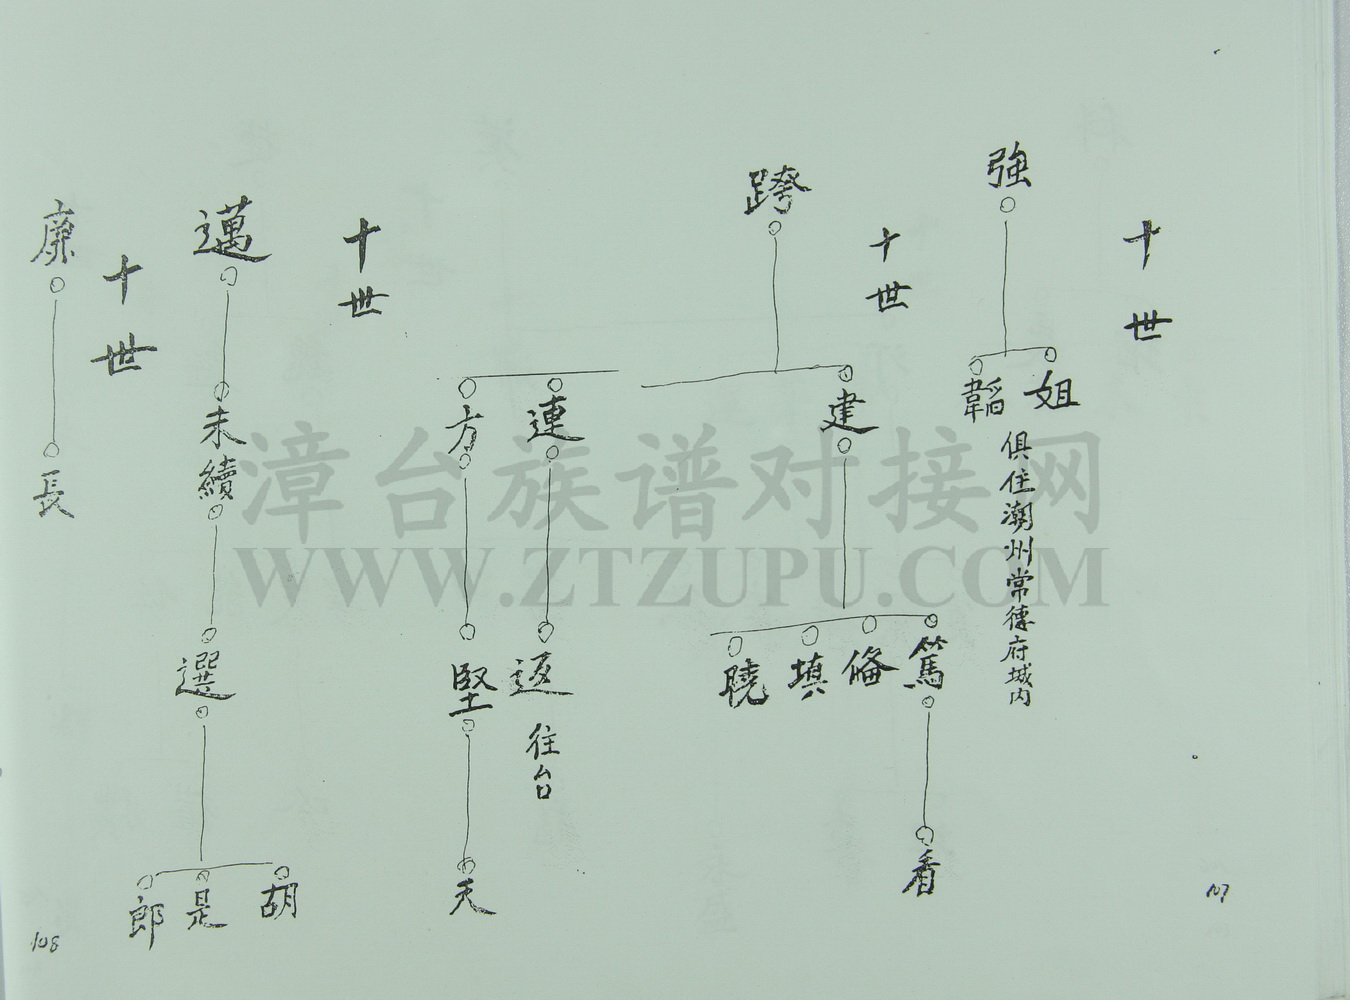 十世
強
姐
韜
俱住潮州常德府城內
十世
跨
建
篤
俻
填
曉
看
連
返
往台
方
堅
天
十世
邁
未續
選
胡
是
郎
十世
廉
長
107
108
漳台族谱对接网
WWW.ZTZUPU.COM